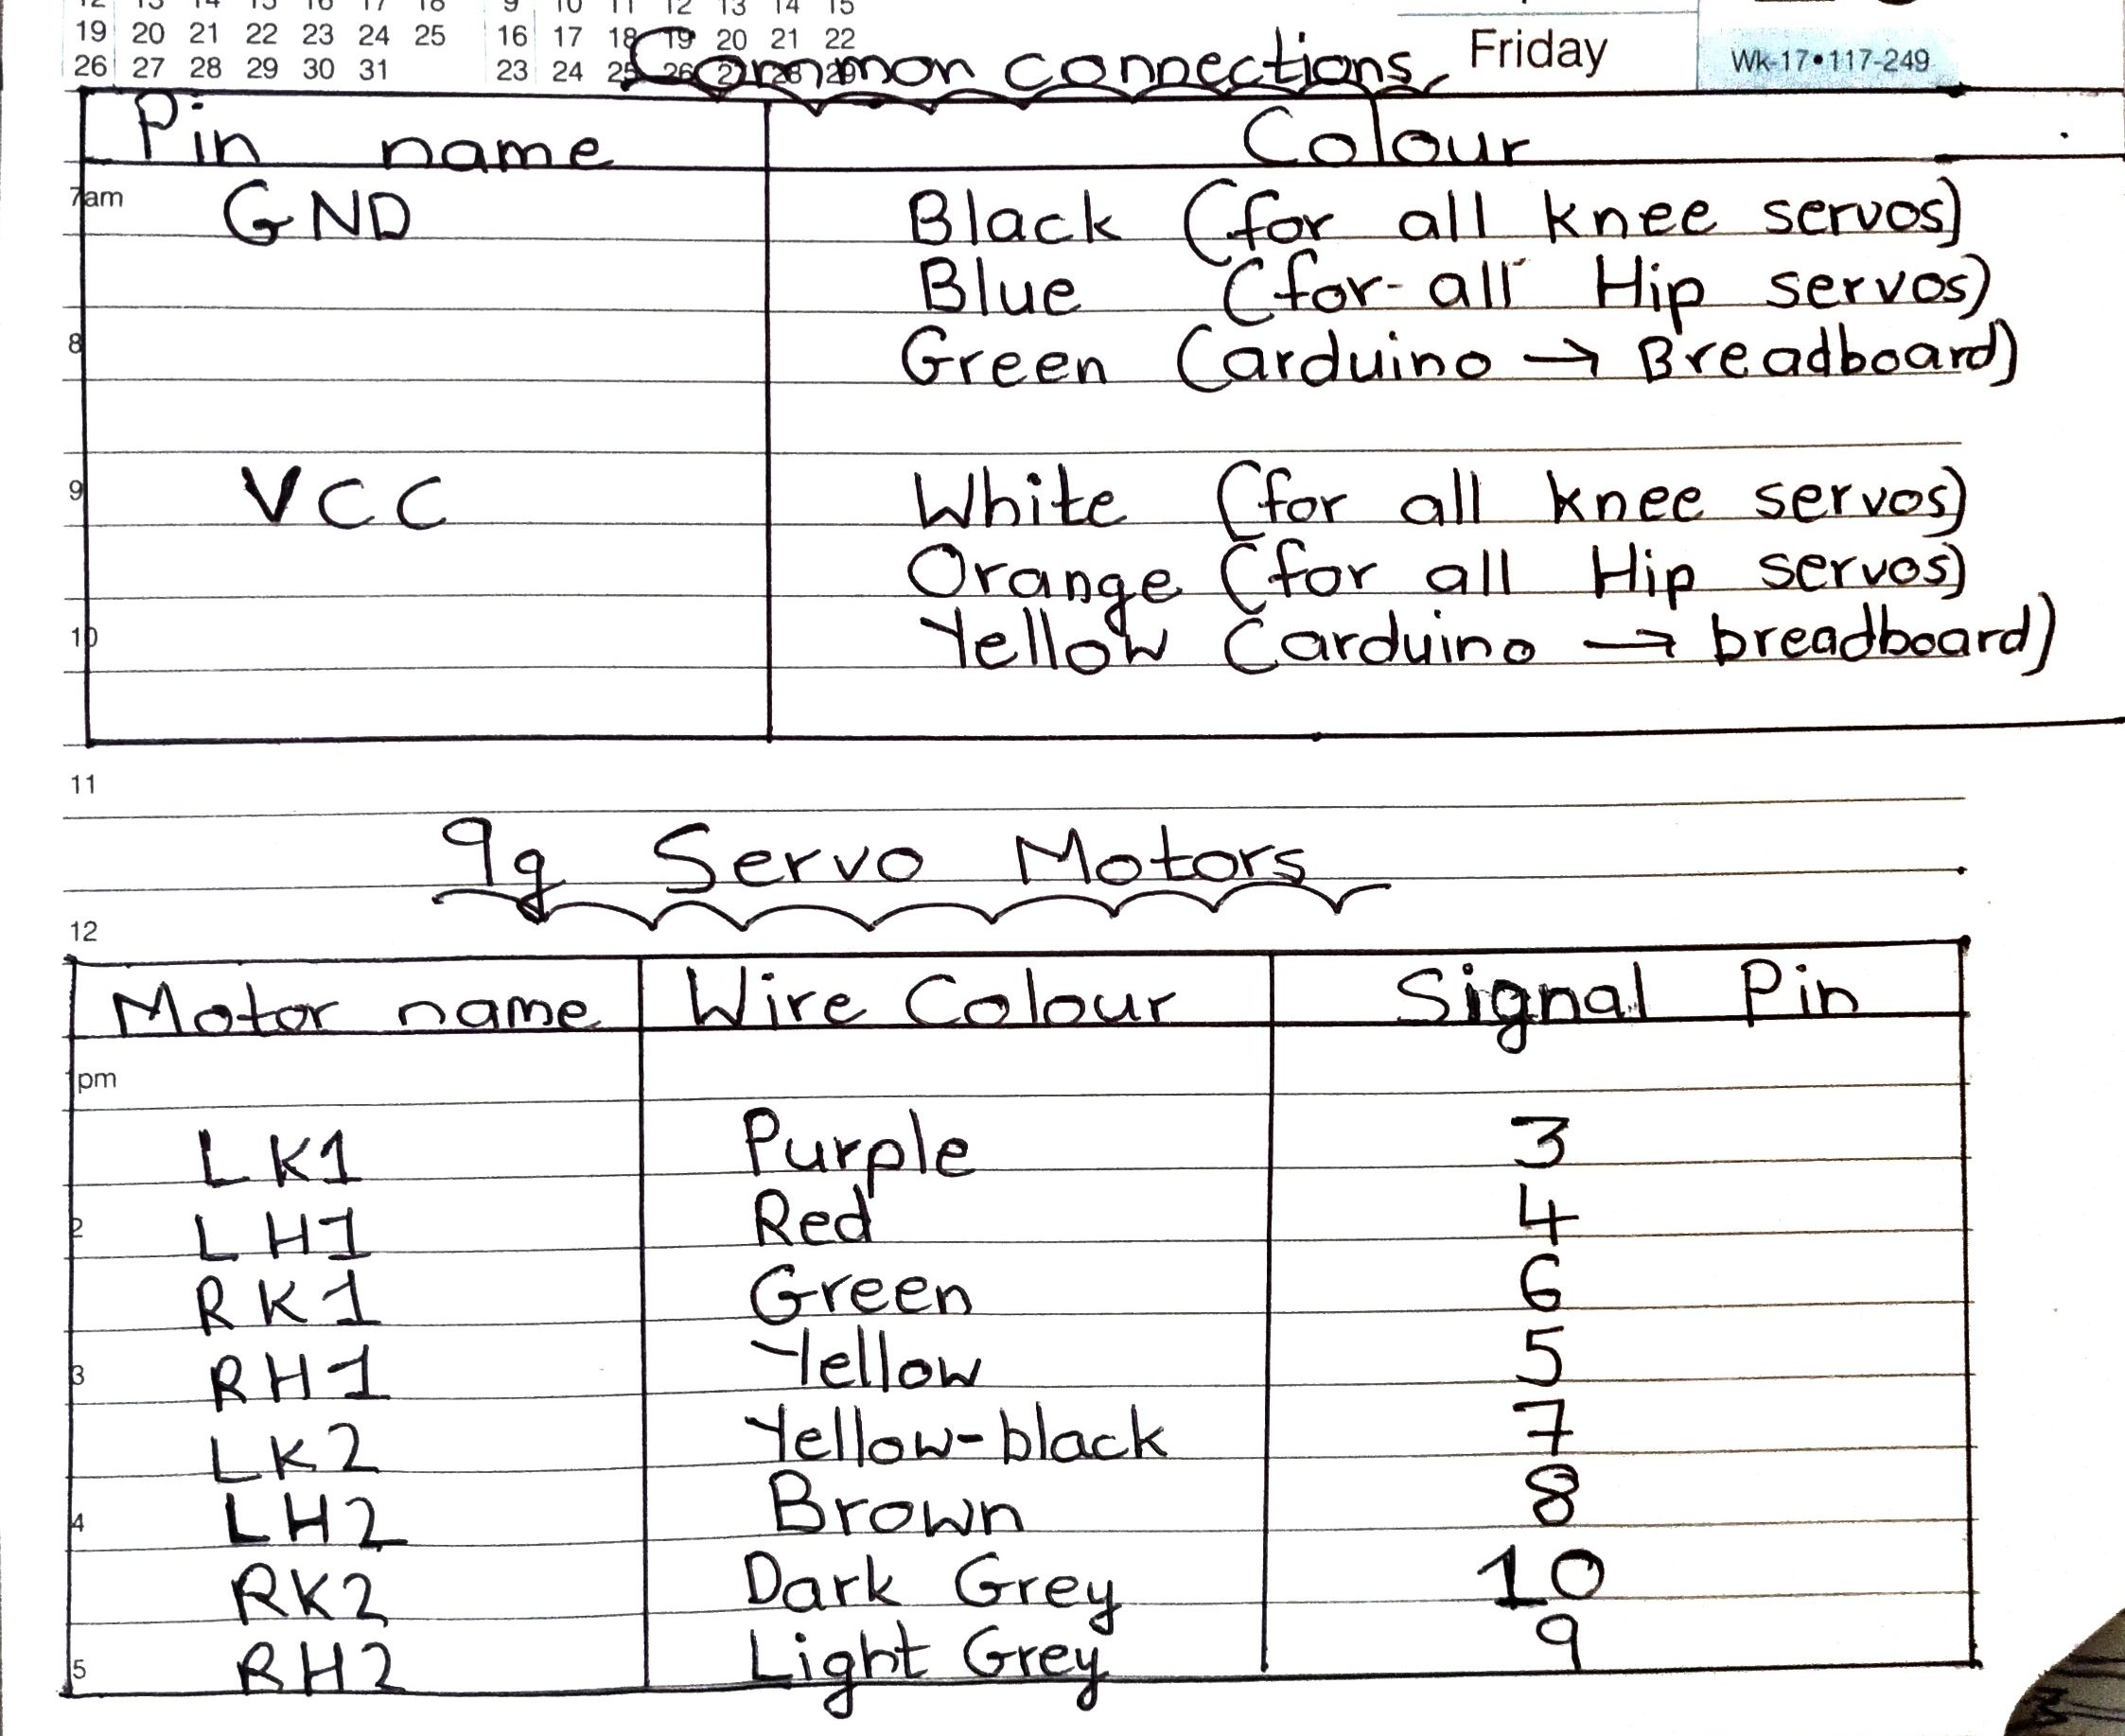 12 13 14 15 16 17 18 9 10 11 12 13 14 15
19 20 21 22 23 24 25 16 17 18 19 20 21 22
26 27 28 29 30 31 23 24 25 26 27 28 29
Friday
Wk-17•117-249
Common connections
Pin name Colour
7am GND Black (for all knee servos)
Blue (for all Hip servos)
8 Green (arduino → Breadboard)
9 VCC White (for all knee servos)
Orange (for all Hip servos)
10 Yellow (arduino → breadboard)
11
9g Servo Motors
12
Motor name Wire Colour Signal Pin
1pm
LK1 Purple 3
2 LH1 Red 4
RK1 Green 6
3 RH1 Yellow 5
LK2 Yellow-black 7
4 LH2 Brown 8
RK2 Dark Grey 10
5 RH2 Light Grey 9